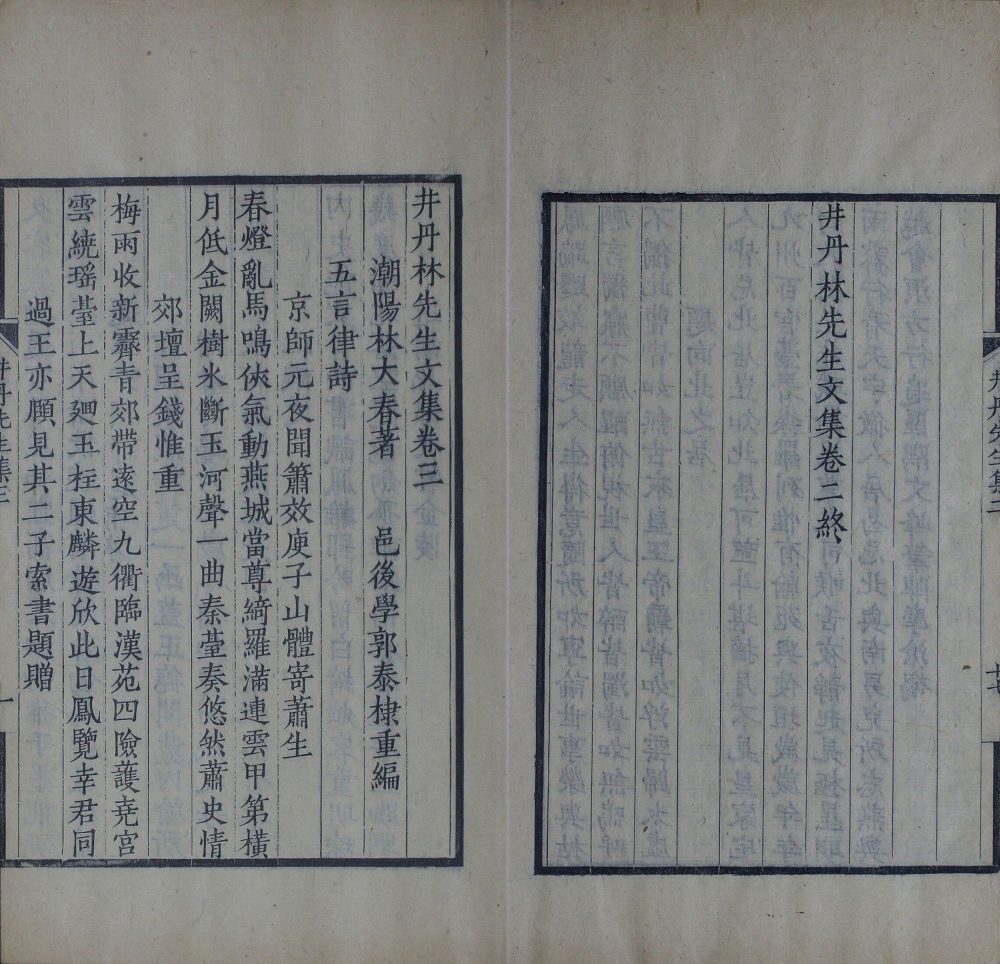 井丹林先生文集卷二終
井丹林先生文集卷三
潮陽林大春著　邑後學郭泰棣重編
五言律詩
京師元夜聞簫效庾子山體寄蕭生
春燈亂馬鳴俠氣動燕城當尊綺羅滿連雲甲第橫
月低金闕樹氷斷玉河聲一曲秦臺奏悠然蕭史情
郊壇呈錢惟重
梅雨收新霽青郊帶遠空九衢臨漢苑四險護堯宮
雲繞瑤臺上天廻玉柱東麟遊欣此日鳳覽幸君同
過王亦頤見其二子索書題贈
井丹先生集三
一